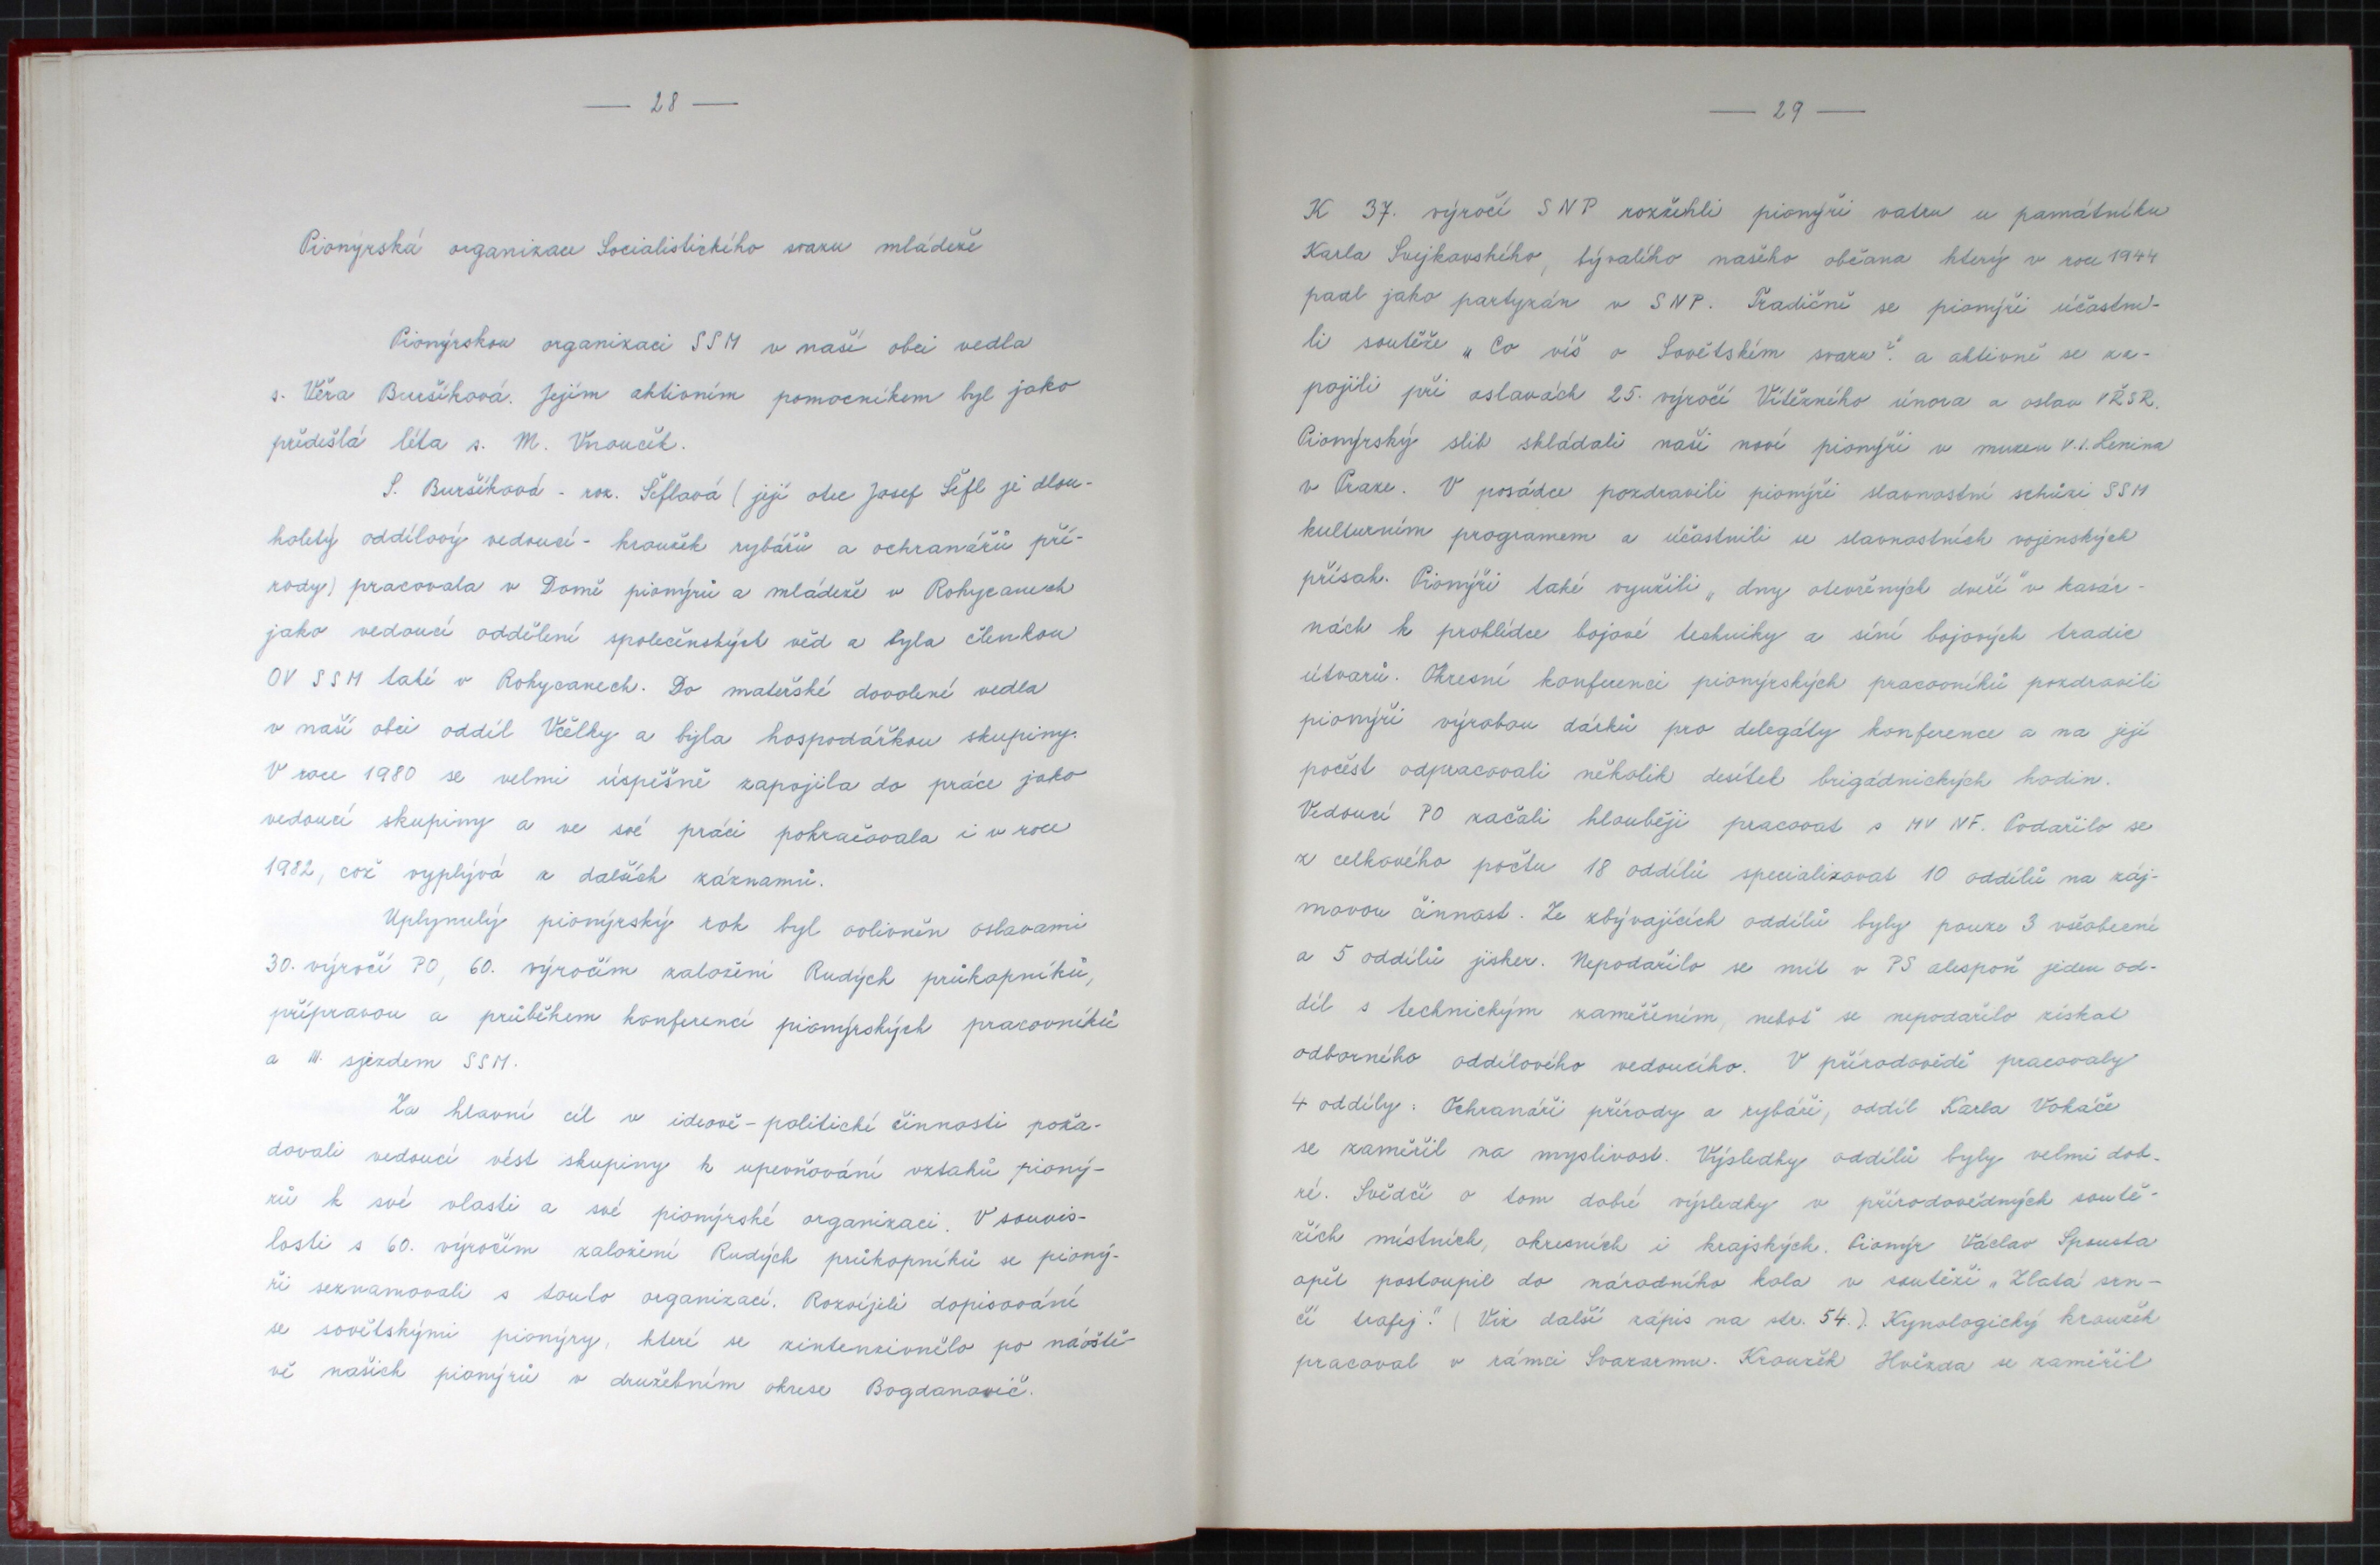 — 28 —
Pionýrská organizace Socialistického svazu mládeže
Pionýrskou organizaci SSM v naší obci vedla
s. Věra Buršíková. Jejím aktivním pomocníkem byl jako
předešlá léta s. M. Vnouček.
S. Buršíková - roz. Šeflová (její otec Josef Šefl je dlou-
holetý oddílový vedoucí - kroužek rybářů a ochranářů pří-
rody) pracovala v Domě pionýrů a mládeže v Rokycanech
jako vedoucí oddělení společenských věd a byla členkou
OV SSM také v Rokycanech. Do mateřské dovolené vedla
v naší obci oddíl Včelky a byla hospodářkou skupiny.
V roce 1980 se velmi úspěšně zapojila do práce jako
vedoucí skupiny a ve své práci pokračovala i v roce
1982, což vyplývá z dalších záznamů.
Uplynulý pionýrský rok byl ovlivněn oslavami
30. výročí PO, 60. výročím založení Rudých průkopníků,
přípravou a průběhem konferencí pionýrských pracovníků
a III. sjezdem SSM.
Za hlavní cíl v ideově-politické činnosti poža-
dovali vedoucí vést skupiny k upevňování vztahů pioný-
rů k své vlasti a své pionýrské organizaci. V souvis-
losti s 60. výročím založení Rudých průkopníků se pioný-
ři seznamovali s touto organizací. Rozvíjeli dopisování
se sovětskými pionýry, které se zintenzivnělo po návště-
vě našich pionýrů v družebním okrese Bogdanovič.
— 29 —
K 37. výročí SNP rozžehli pionýři vatru u památníku
Karla Svejkovského, bývalého našeho občana který v roce 1944
padl jako partyzán v SNP. Tradičně se pionýři účastni-
li soutěže „Co víš o Sovětském svazu?" a aktivně se za-
pojili při oslavách 25. výročí Vítězného února a oslav VŘSR.
Pionýrský slib skládali naši noví pionýři v muzeu V.I. Lenina
v Praze. V posádce pozdravili pionýři slavnostní schůzi SSM
kulturním programem a účastnili se slavnostních vojenských
přísah. Pionýři také využili „dny otevřených dveří" v kasár-
nách k prohlídce bojové techniky a síní bojových tradic
útvarů. Okresní konferenci pionýrských pracovníků pozdravili
pionýři výrobou dárků pro delegáty konference a na její
počest odpracovali několik desítek brigádnických hodin.
Vedoucí PO začali hlouběji pracovat s MV NF. Podařilo se
z celkového počtu 18 oddílů specializovat 10 oddílů na záj-
movou činnost. Ze zbývajících oddílů byly pouze 3 všeobecné
a 5 oddílů jisker. Nepodařilo se mít v PS alespoň jeden od-
díl s technickým zaměřením, neboť se nepodařilo získat
odborného oddílového vedoucího. V přírodovědě pracovaly
4 oddíly: Ochranáři přírody a rybáři, oddíl Karla Vokáče
se zaměřil na myslivost. Výsledky oddílů byly velmi dob-
ré. Svědčí o tom dobré výsledky v přírodovědných soutě-
žích místních, okresních i krajských. Pionýr Václav Spousta
opět postoupil do národního kola v soutěži „Zlatá srn-
čí trofej." (Viz další zápis na str. 54.). Kynologický kroužek
pracoval v rámci Svazarmu. Kroužek Hvězda se zaměřil